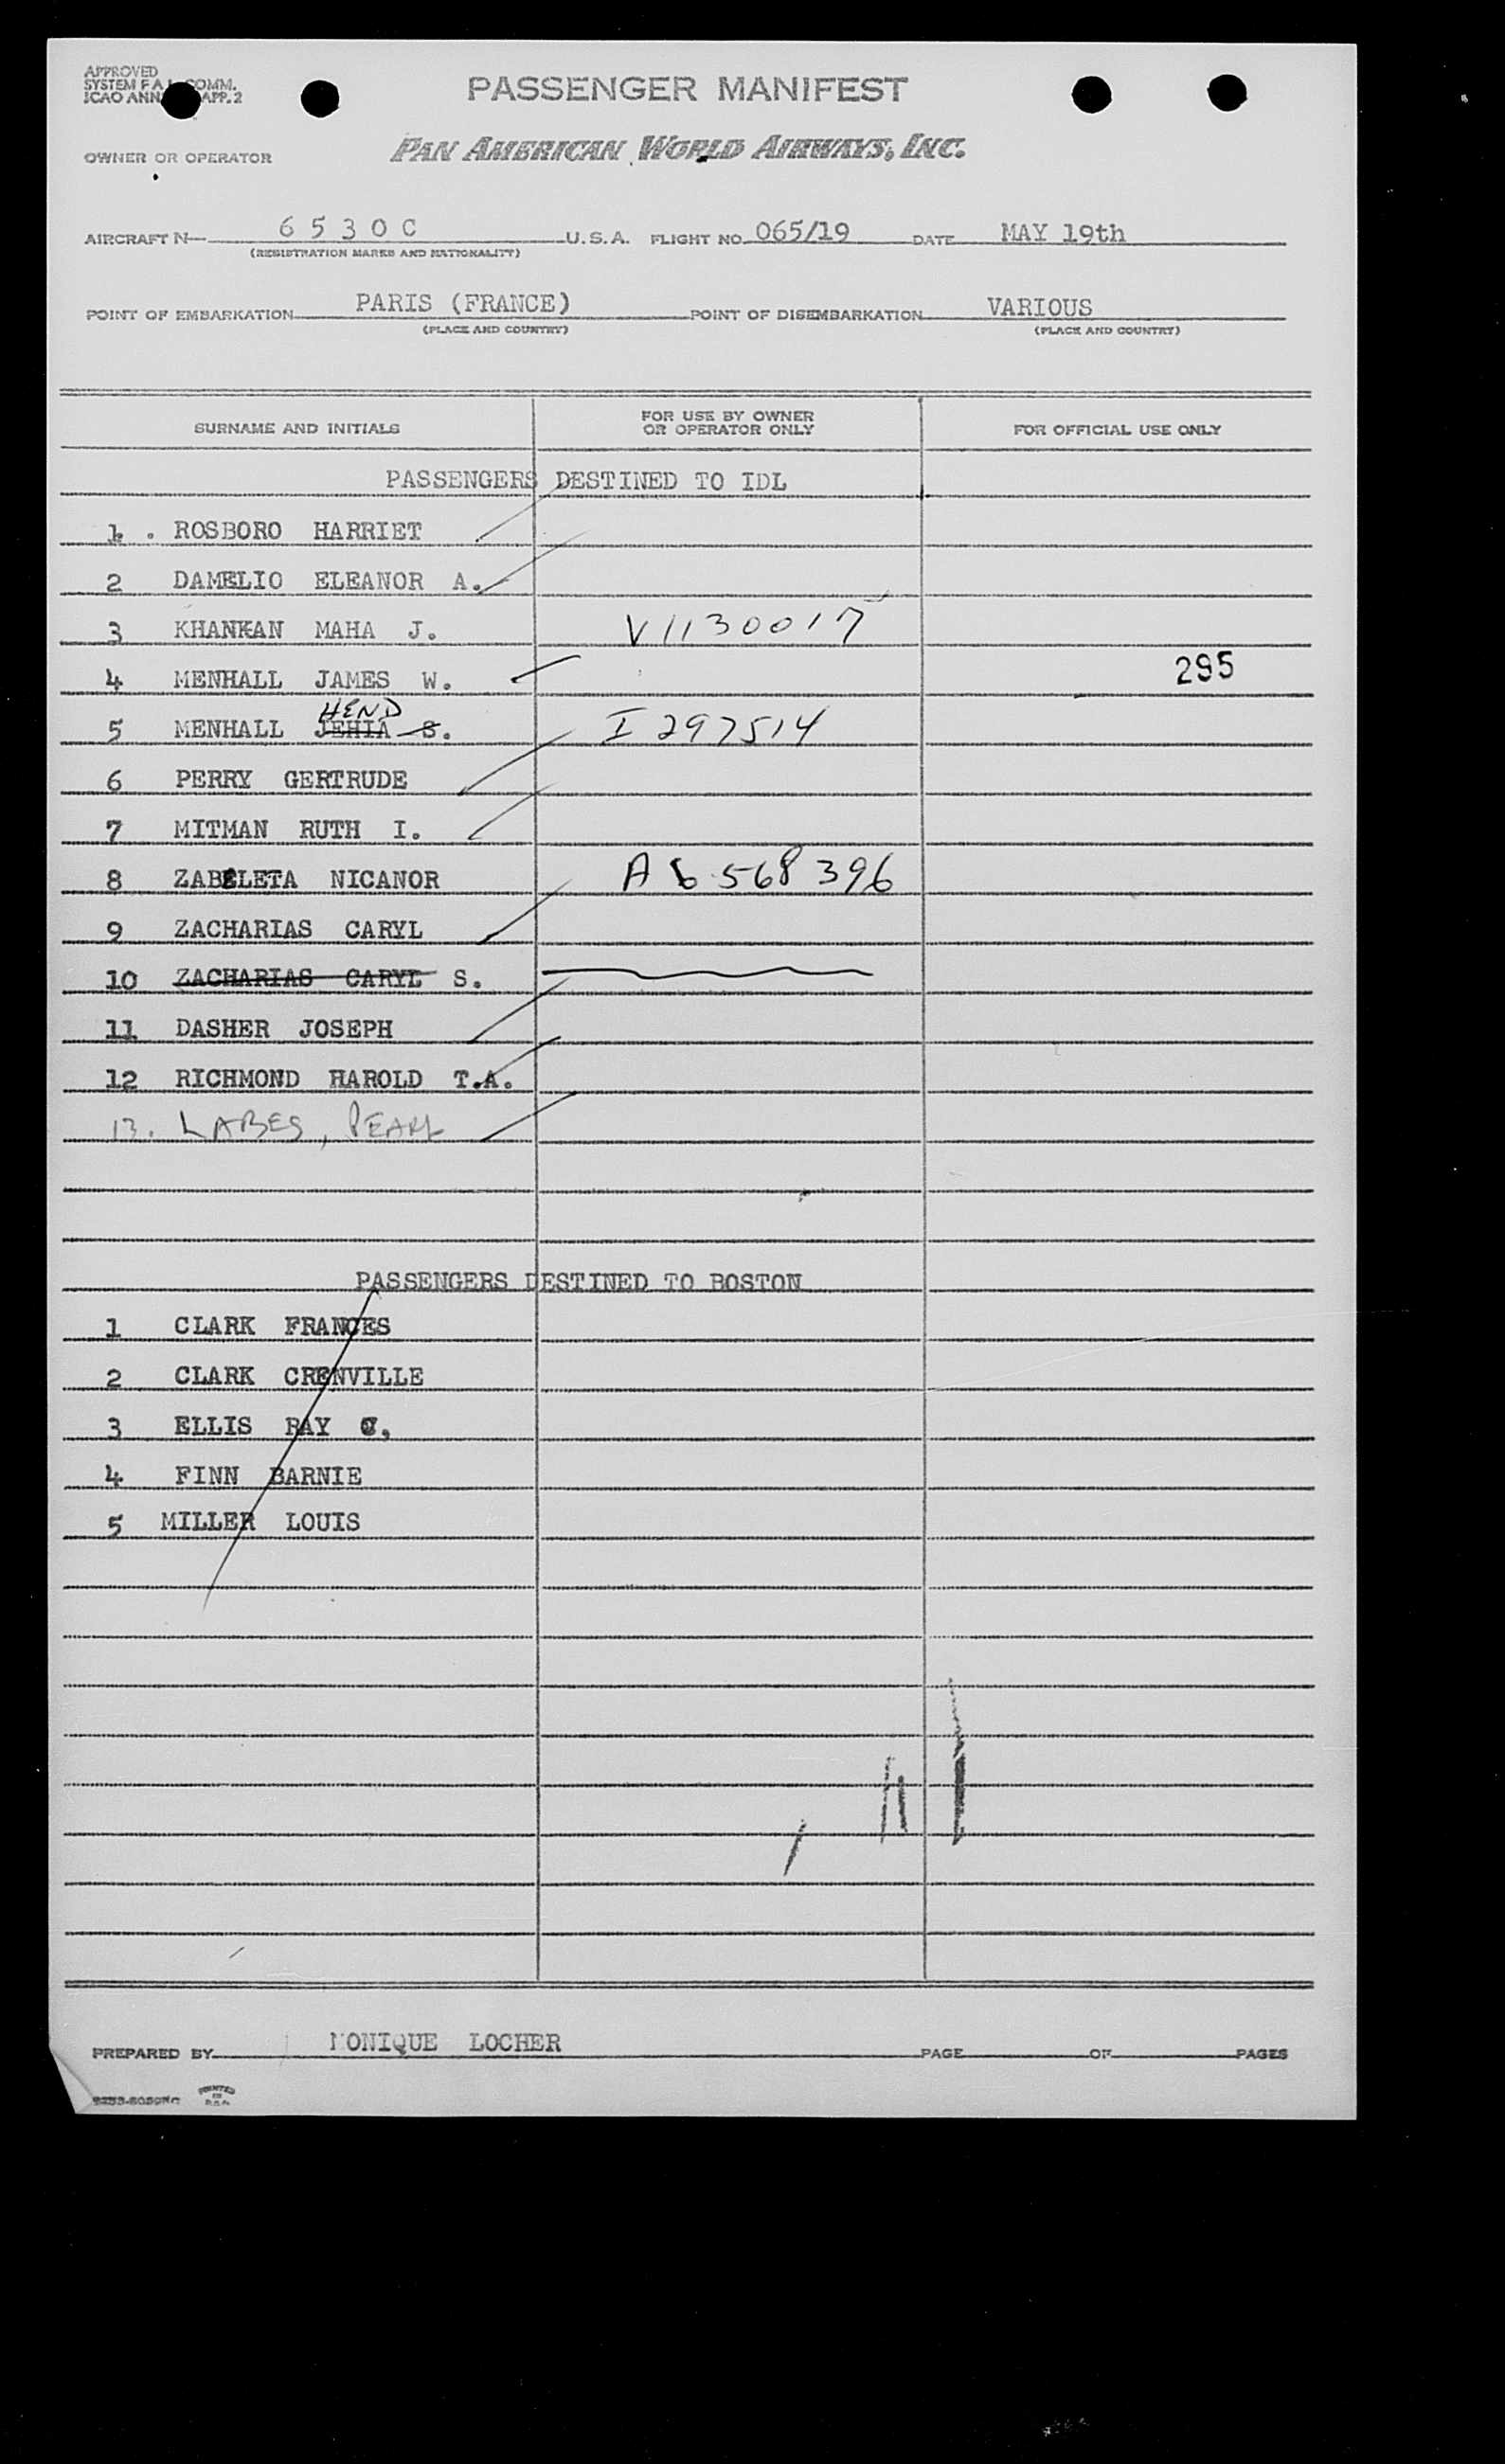 APPROVED
SYSTEM F A L COMM.
ICAO ANN APP. 2
PASSENGER MANIFEST
OWNER OR OPERATOR PAN AMERICAN WORLD AIRWAYS, INC.
AIRCRAFT N— 6 5 3 0 C U.S.A. FLIGHT NO. 065/19 DATE MAY 19th
(REGISTRATION MARKS AND NATIONALITY)
POINT OF EMBARKATION PARIS (FRANCE) POINT OF DISEMBARKATION VARIOUS
(PLACE AND COUNTRY) (PLACE AND COUNTRY)
SURNAME AND INITIALS FOR USE BY OWNER OR OPERATOR ONLY FOR OFFICIAL USE ONLY
PASSENGERS DESTINED TO IDL
1. ROSBORO HARRIET
2 DAMELIO ELEANOR A.
3 KHANKAN MAHA J. V1130017
4 MENHALL JAMES W. 295
HEND
5 MENHALL JEHIA S. I 297514
6 PERRY GERTRUDE
7 MITMAN RUTH I.
8 ZABELETA NICANOR A 6 568 396
9 ZACHARIAS CARYL
10 ZACHARIAS CARYL S.
11 DASHER JOSEPH
12 RICHMOND HAROLD T.A.
13. LABES, PEARL
PASSENGERS DESTINED TO BOSTON
1 CLARK FRANCES
2 CLARK CRENVILLE
3 ELLIS RAY C,
4 FINN BARNIE
5 MILLER LOUIS
PREPARED BY MONIQUE LOCHER PAGE OF PAGES
PRINTED
IN
U.S.A.